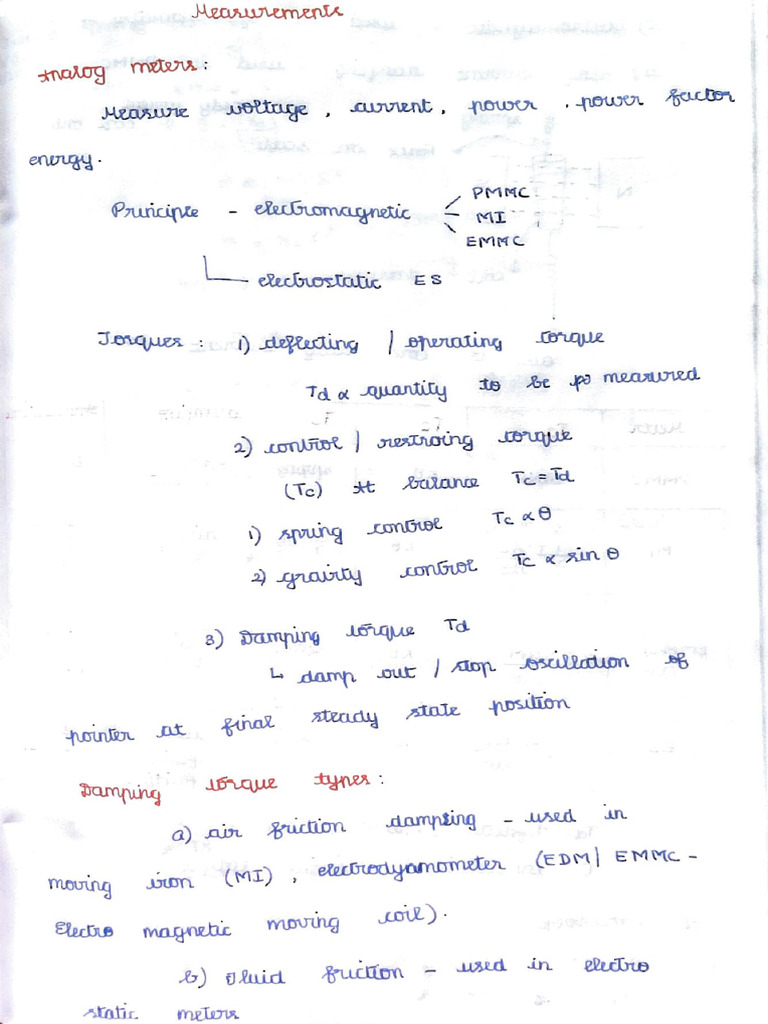 Measurements
Analog meters :
Measure voltage , current , power , power factor
energy .
Principle - electromagnetic
PMMC
MI
EMMC
electrostatic ES
Torques : 1) deflecting / operating torque
Td ∝ quantity to be measured
2) control / restroing torque
(Tc) At balance Tc = Td
1) spring control Tc ∝ θ
2) grairty control Tc ∝ sin θ
3) Damping torque Td
↳ damp out / stop oscillation of
pointer at final steady state position
Damping torque types :
a) air friction damping - used in
moving iron (MI) , electrodyamometer (EDM/ EMMC -
Electro magnetic moving coil) .
b) Fluid friction - used in electro
static meters